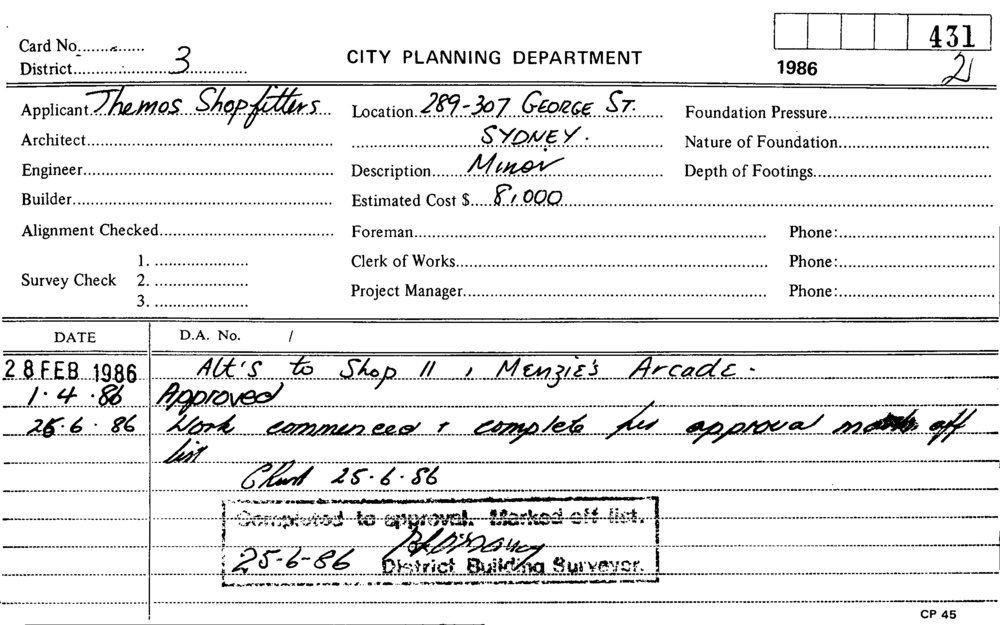 Card No.
431
District 3
CITY PLANNING DEPARTMENT
1986
2
Applicant Themos Shopfitters
Location 289-307 GEORGE ST.
Foundation Pressure
Architect
SYDNEY.
Nature of Foundation
Engineer
Description Minor
Depth of Footings
Builder
Estimated Cost $ 8,000
Alignment Checked
Foreman
Phone:
Survey Check
1.
Clerk of Works
Phone:
2.
Project Manager
Phone:
3.
DATE
D.A. No. /
28 FEB 1986 Alt's to Shop 11, Menzie's Arcade.
1.4.86 Approved
25.6.86 Work commenced + complete per approval off
list
25.6.86
Completed to approval. Marked off list.
25-6-86 District Building Surveyor.
CP 45